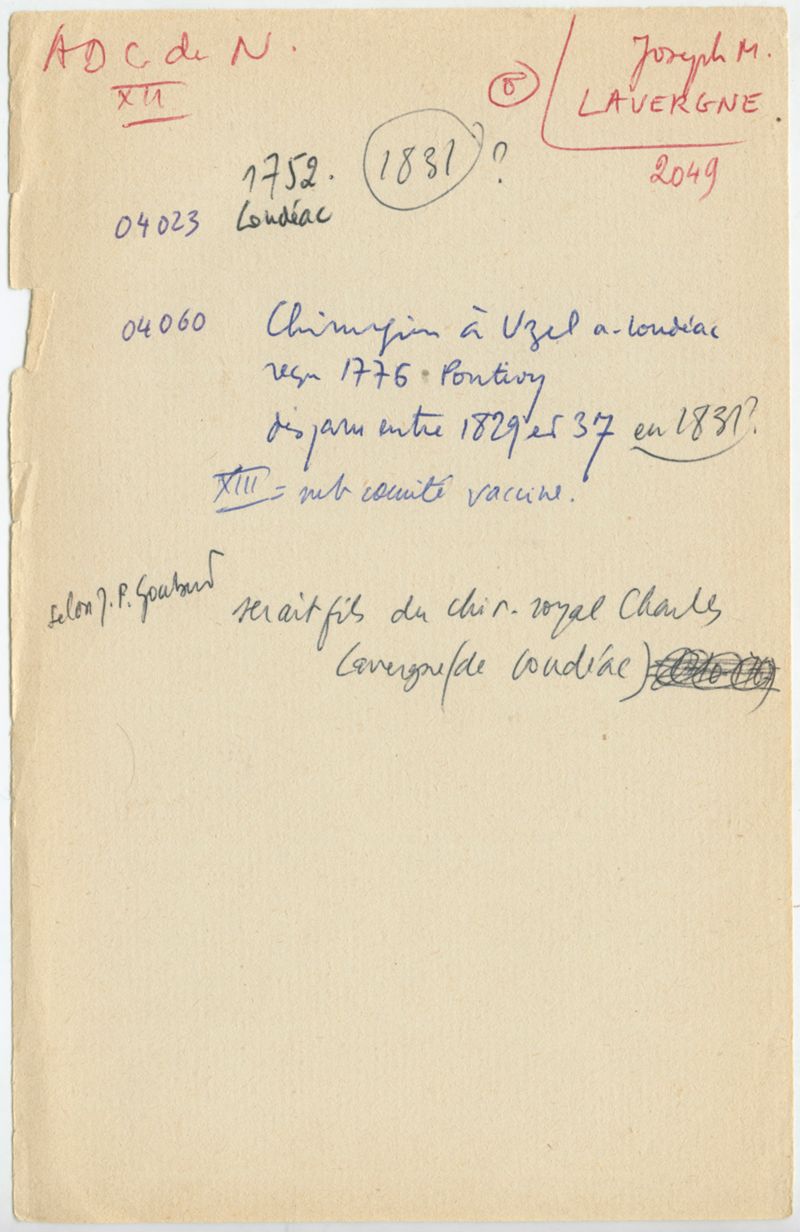 ADC de N.
XII
Joseph M.
LAVERGNE
2049
1752. 1831 ?
04023 Loudéac
04060 Chirurgien à Uzel a. Loudéac
reçu 1776 Pontivy
disparu entre 1829 et 37 en 1831?
XIII = sub comité vaccine.
selon J. P. Goubert serait fils du chir. royal Charles
Lavergne (de Loudéac)